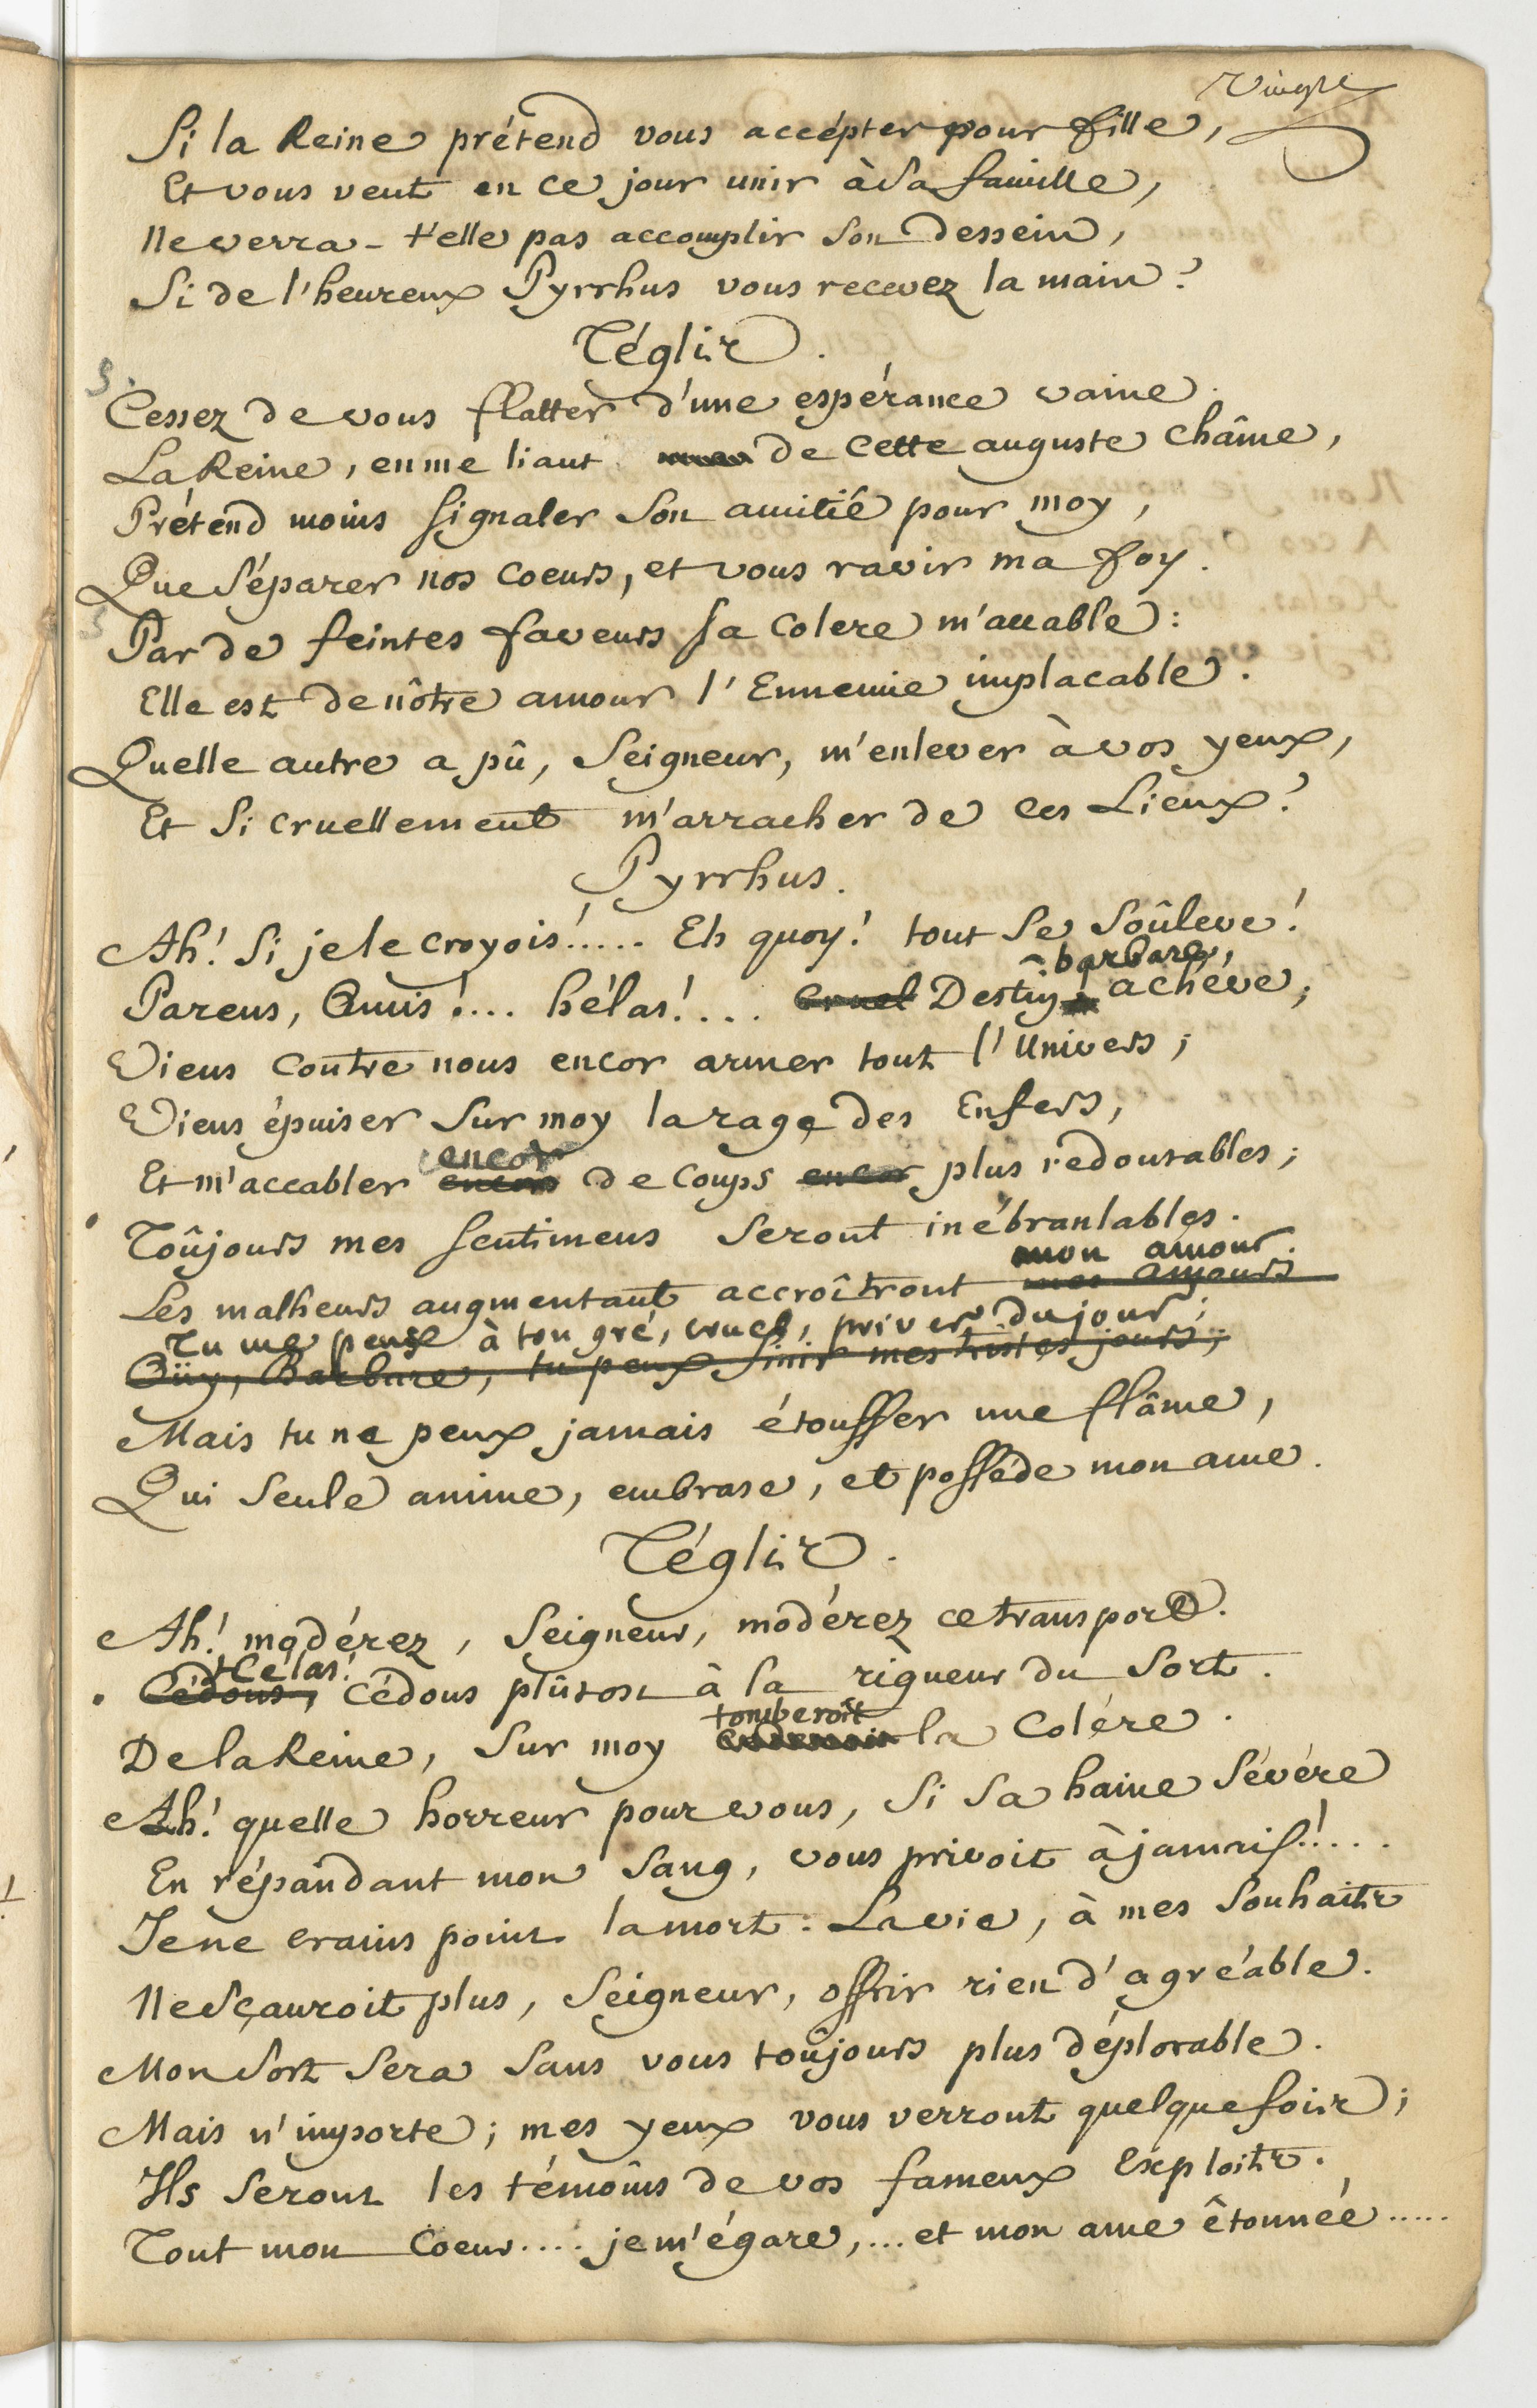 Vingt
Si la Reine prétend vous accépter pour fille,
Et vous veut en ce jour unir à Sa famille,
Ne verra-t'elle pas accomplir Son Dessein,
Si de l'heureux Pyrrhus vous recevez la main?
Téglis.
Cessez de vous flatter d'une espérance vaine.
La Reine, en me liant de cette auguste chaîne,
Prétend moins signaler Son amitié pour moy,
Que Séparer nos coeurs, et vous ravir ma foy.
Par de feintes faveurs sa colere m'accable:
Elle est de nôtre amour l'Ennemie implacable.
Quelle autre a pû, Seigneur, m'enlever à vos yeux,
Et Si cruellement m'arracher de ces Lieux?
Pyrrhus.
Ah! Si je le croyois!..... Eh quoy! tout Se Soûleve!
barbare,
Parens, Amis!... hélas!.... Cruel Destin, achéve;
Viens contre nous encor armer tout l'Univers;
Viens épuiser Sur moy la rage des Enfers,
encor
Et m'accabler encore de coups encor plus redoutables;
Toûjours mes sentimens Seront inébranlables.
mon amour.
Les malheurs augmentant accroîtront mes amours
Tu me peux à ton gré, cruel, priver du jour;
Oüy, Barbare, tu peux finir mes tristes jours;
Mais tu ne peux jamais étouffer une flâme,
Qui Seule anime, embrase, et posséde mon ame.
Téglis.
Ah! modérez, Seigneur, modérez ce transport.
Hélas!
Cédons, cédons plûtost à la rigueur du Sort.
tomberoit
De la Reine, Sur moy la Colére.
Ah! quelle horreur pour vous, Si Sa haine Sévére
En répandant mon Sang, vous privoit à jamais!....
Je ne crains point la mort: La vie, à mes Souhaits
Ne Sçauroit plus, Seigneur, offrir rien d'agréable.
Mon Sort Sera Sans vous toûjours plus déplorable.
Mais n'importe; mes yeux vous verront quelquefois;
Ils Seront les témoins de vos fameux Exploits.
Tout mon Coeur.... je m'égare,... et mon ame êtonnée.....